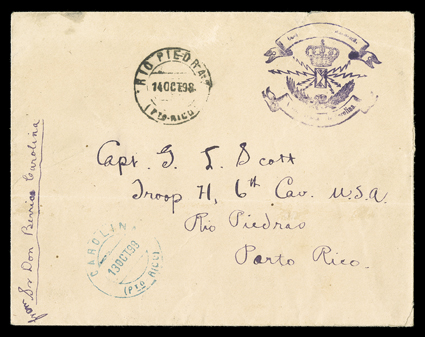 RIO PIEDRAS
14OCT98
(PTO-RICO)
Capt. G. L. Scott
Troop H, 6th Cav. U.S.A.
Rio Piedras
Porto Rico.
CAROLINA
13OCT98
(PTO RICO)
Sr Don Benias Carolina